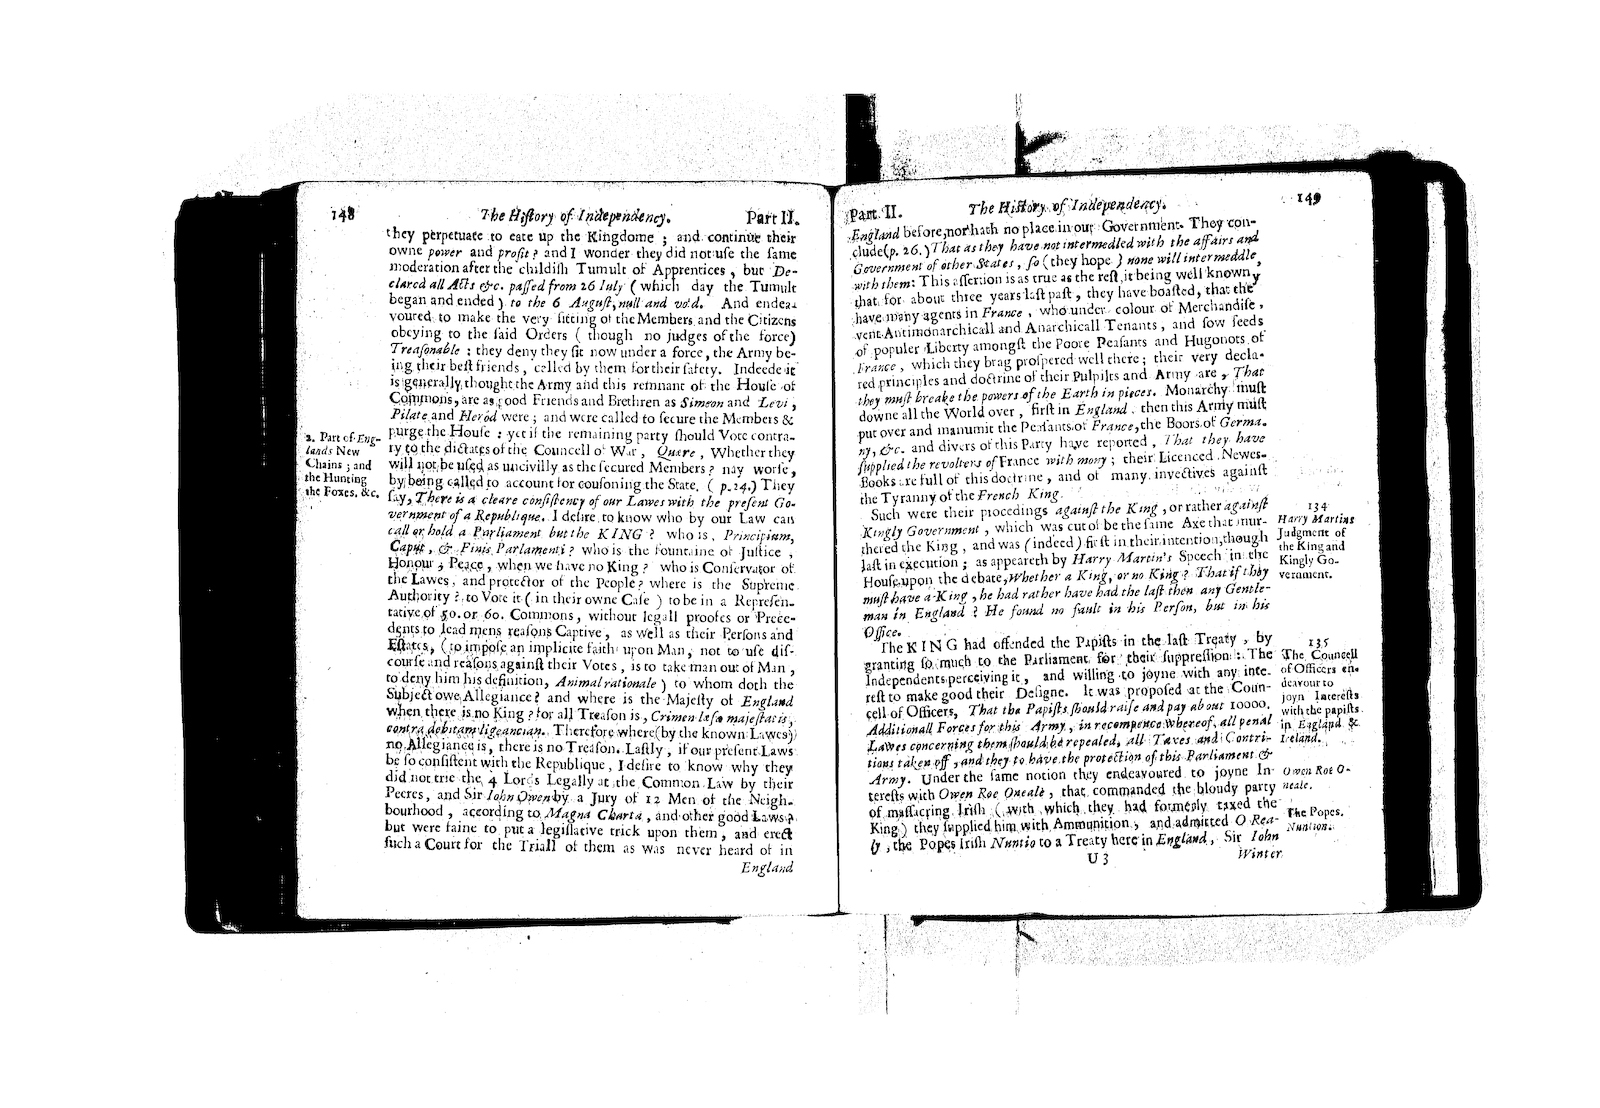 148 The Hiſtory of Independency. Part II.
they perpetuate to eate up the Kingdome ; and continue their
owne power and profit ? and I wonder they did not uſe the ſame
moderation after the childiſh Tumult of Apprentices , but De-
clared all Acts &c. paſſed from 26 July ( which day the Tumult
began and ended ) to the 6 Auguſt, null and void. And endea-
voured to make the very ſitting of the Members and the Citizens
obeying to the ſaid Orders ( though no judges of the force)
Treaſonable : they deny they ſit now under a force, the Army be-
ing their beſt friends , called by them for their ſafety. Indeede it
is generally thought the Army and this remnant of the Houſe of
Commons, are as good Friends and Brethren as Simeon and Levi ,
Pilate and Herod were ; and were called to ſecure the Members &
purge the Houſe : yet if the remaining party ſhould Vote contra-
ry to the dictates of the Councell of War , Quære , Whether they
will not be uſed as uncivilly as the ſecured Members ? nay worſe,
by being called to account for couſoning the State. ( p. 24.) They
ſay, There is a cleare conſiſtency of our Lawes with the preſent Go-
vernment of a Republique. I deſire to know who by our Law can
call or hold a Parliament but the KING ? who is , Principium,
Caput , & Finis Parlamenti ? who is the fountaine of Juſtice ,
Honour ; Peace , when we have no King ? who is Conſervator of
the Lawes , and protector of the People ? where is the Supreme
Authority ? to Vote it ( in their owne Caſe ) to be in a Repreſen-
tative of 50. or 60. Commons, without legall proofes or Prece-
dents to lead mens reaſons Captive , as well as their Perſons and
Eſtates, ( to impoſe an implicite faith upon Man, not to uſe diſ-
courſe and reaſons againſt their Votes , is to take man out of Man ,
to deny him his definition, Animal rationale ) to whom doth the
Subject owe Allegiance ? and where is the Majeſty of England
when there is no King ? for all Treaſon is , Crimen læſæ majeſtatis,
contra debitam ligeanciam. Therefore where (by the known Lawes)
no Allegiance is, there is no Treaſon. Laſtly , if our preſent Laws
be ſo conſiſtent with the Republique , I deſire to know why they
did not trie the 4 Lords Legally at the Common Law by their
Peeres, and Sir Iohn Owen by a Jury of 12 Men of the Neigh-
bourhood , according to Magna Charta , and other good Laws ?
but were faine to put a legiſlative trick upon them , and erect
ſuch a Court for the Triall of them as was never heard of in
England
2. Part of Eng-
lands New
Chains ; and
the Hunting
the Foxes, &c.
Part. II. The Hiſtory of Independency. 149
England before, nor hath no place in our Government. They con-
clude (p. 26.) That as they have not intermedled with the affairs and
Government of other States , ſo ( they hope ) none will intermeddle
with them : This aſſertion is as true as the reſt, it being well known
that for about three years laſt paſt , they have boaſted, that they
have many agents in France , who under colour of Merchandiſe ,
vent Antimonarchicall and Anarchicall Tenants , and ſow ſeeds
of populer Liberty amongſt the Poore Peaſants and Hugonots of
France , which they brag proſpered well there ; their very decla-
red principles and doctrine of their Pulpits and Army are , That
they muſt breake the powers of the Earth in pieces. Monarchy muſt
downe all the World over , firſt in England , then this Army muſt
put over and manumit the Peaſants of France, the Boors of Germa-
ny, &c. and divers of this Party have reported , That they have
ſupplied the revolters of France with mony ; their Licenced Newes-
Books are full of this doctrine , and of many invectives againſt
the Tyranny of the French King.
Such were their procedings againſt the King , or rather againſt
Kingly Government , which was cut of be the ſame Axe that mur-
thered the King , and was (indeed) firſt in their intention, though
laſt in execution ; as appeareth by Harry Martin's Speech in the
Houſe, upon the debate, Whether a King, or no King ? That if they
muſt have a King , he had rather have had the laſt then any Gentle-
man in England ? He found no fault in his Perſon, but in his
Office.
The KING had offended the Papiſts in the laſt Treaty , by
granting ſo much to the Parliament for their ſuppreſſion : The
Independents perceiving it , and willing to joyne with any inte-
reſt to make good their Deſigne. It was propoſed at the Coun-
cell of Officers, That the Papiſts ſhould raiſe and pay about 10000.
Additionall Forces for this Army , in recompence whereof, all penal
Lawes concerning them ſhould be repealed, all Taxes and Contri-
tions taken off , and they to have the protection of this Parliament &
Army. Under the ſame notion they endeavoured to joyne In-
tereſts with Owen Roe Oneale , that commanded the bloudy party
of maſſacring Iriſh ( with which they had formerly taxed the
King ) they ſupplied him with Ammunition , and admitted O Rea-
ly , the Popes Iriſh Nuntio to a Treaty here in England , Sir Iohn
U 3 Winter
134
Harry Martins
Judgment of
the King and
Kingly Go-
vernment.
135
The Councell
of Officers en-
deavour to
joyn Intereſts
with the papiſts
in England &
Ireland.
Owen Roe O-
neale.
The Popes
Nuntio.